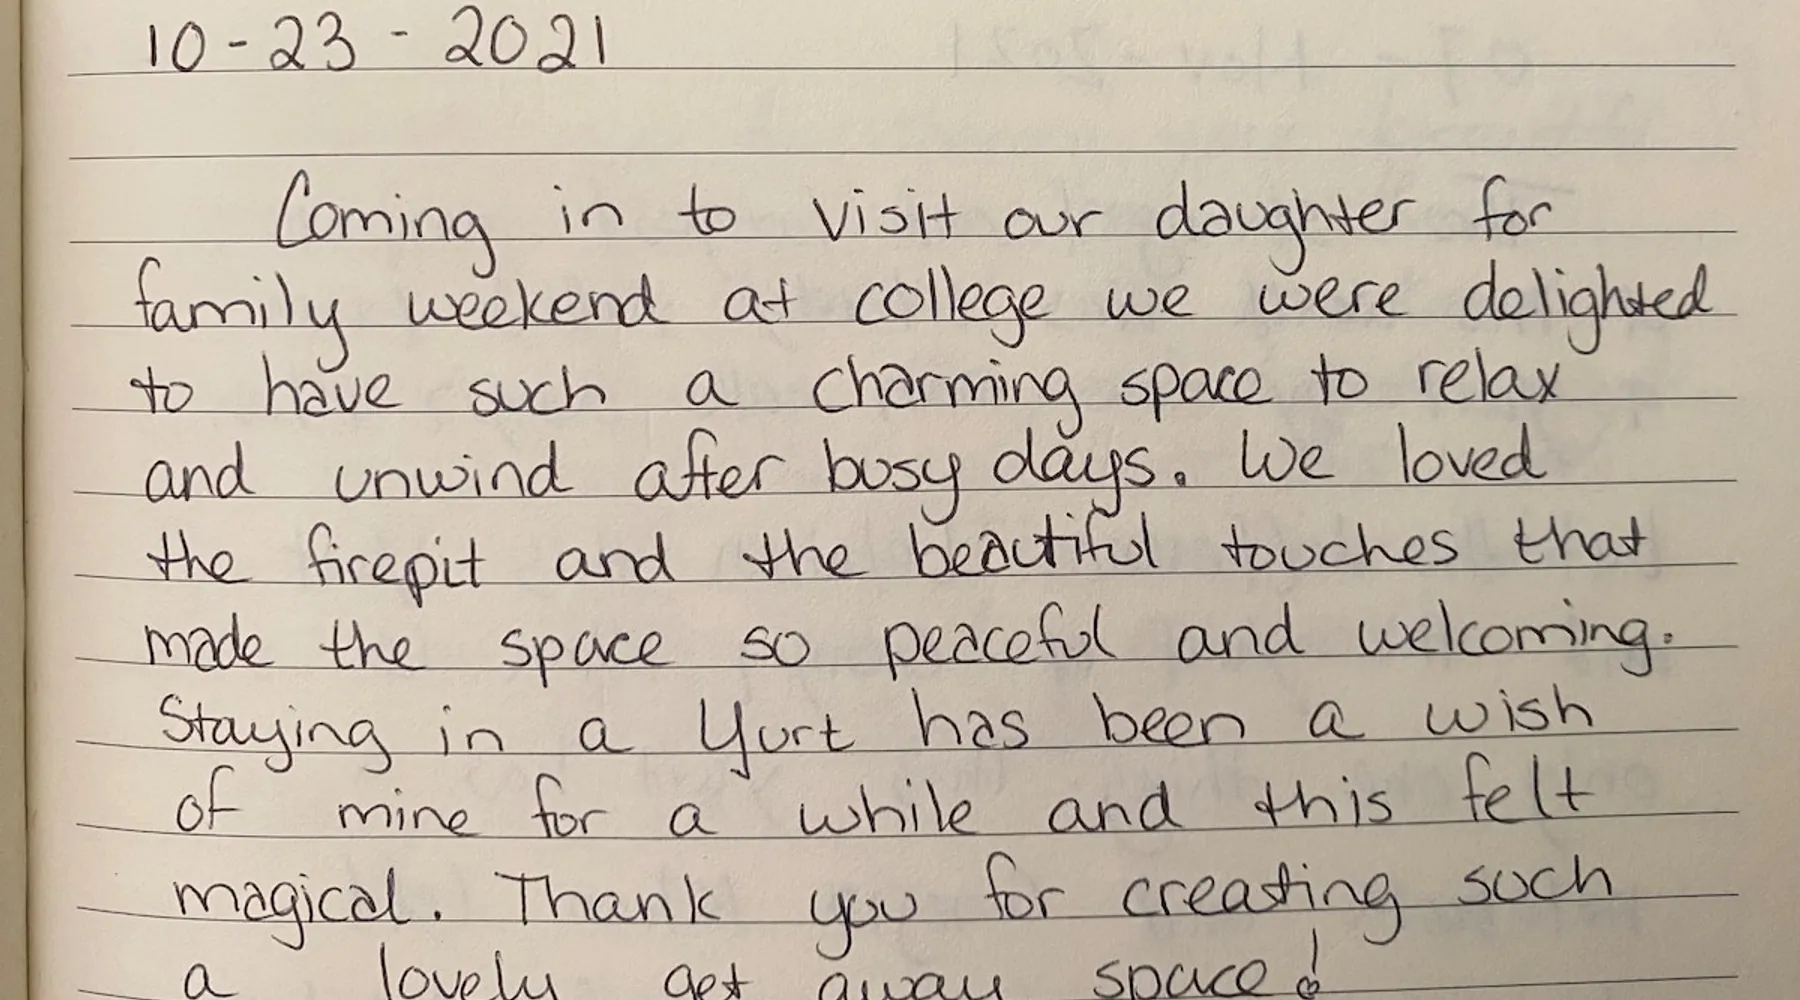 10-23-2021
Coming in to visit our daughter for
family weekend at college we were delighted
to have such a charming space to relax
and unwind after busy days. We loved
the firepit and the beautiful touches that
made the space so peaceful and welcoming.
Staying in a Yurt has been a wish
of mine for a while and this felt
magical. Thank you for creating such
a lovely get away space!